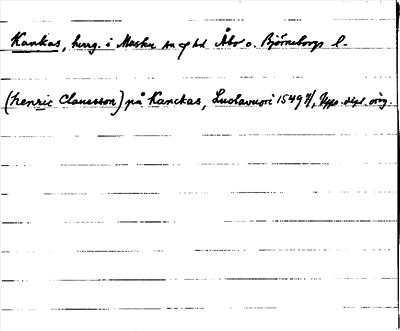 Kankas, herrg. i Masku sn o hd Åbo o. Björneborgs l.
(henric Clausson) på Kanckas, Luolavuori 1549 7/, Upps. dipl. orig.